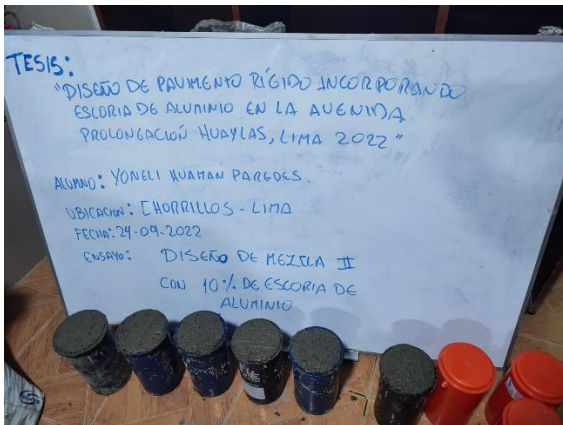 TESIS:
"DISEÑO DE PAVIMENTO RÍGIDO INCORPORANDO
ESCORIA DE ALUMINIO EN LA AVENIDA
PROLONGACIÓN HUAYLAS, LIMA 2022"
ALUMNO: YONELI HUAMAN PAREDES.
UBICACION: CHORRILLOS - LIMA
FECHA: 24-09-2022
ENSAYO: DISEÑO DE MEZCLA II
CON 10% DE ESCORIA DE
ALUMINIO